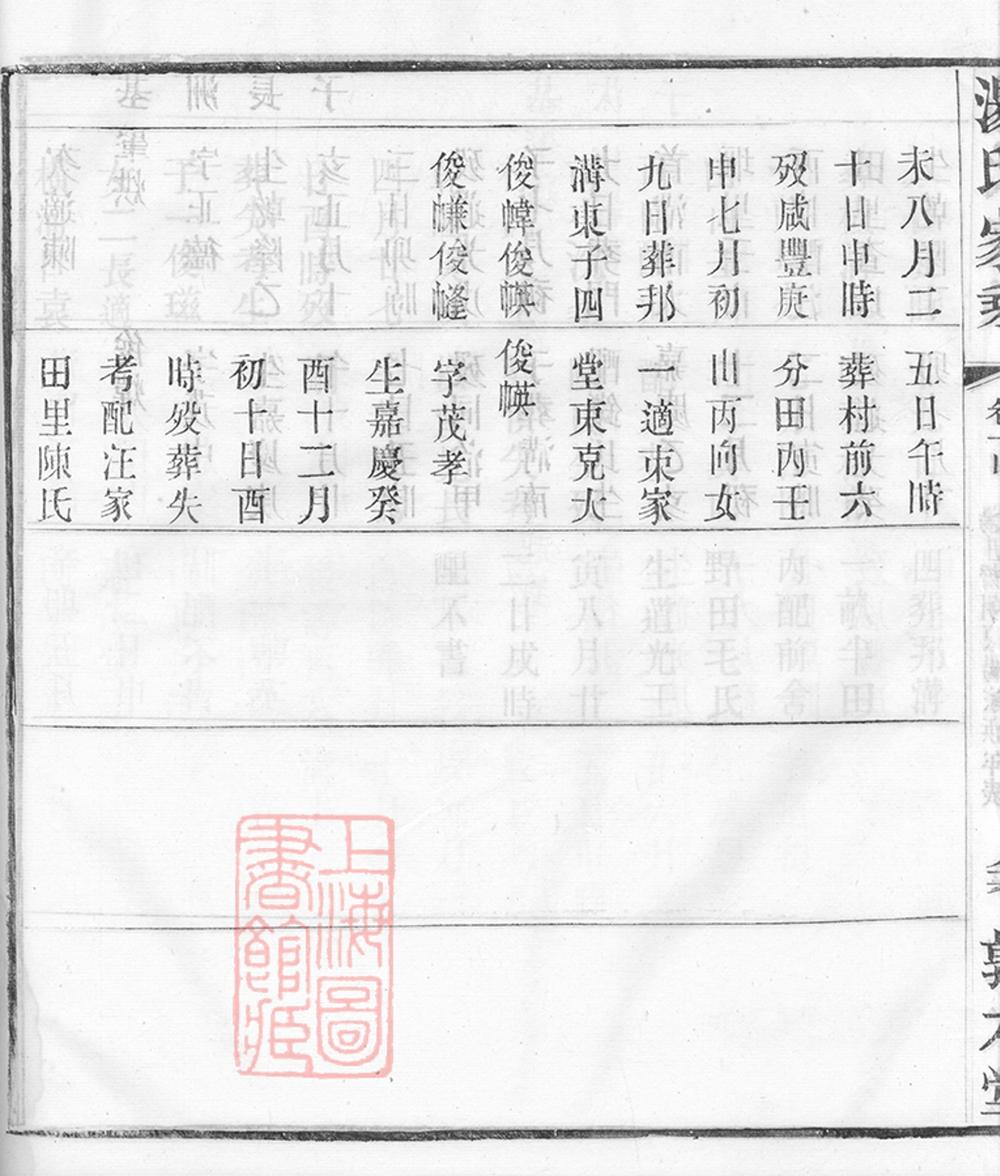 湯氏家乘
未八月二
十日申時
歿咸豐庚
申七月初
九日葬邦
溝東子四
俊幃俊
俊㡘俊
五日午時
葬村前六
分田內壬
山丙向女
一適束家
堂束克大
俊
字茂孝
生嘉慶癸
酉十二月
初十日酉
時歿葬失
考配汪家
田里陳氏
上海圖
書館藏